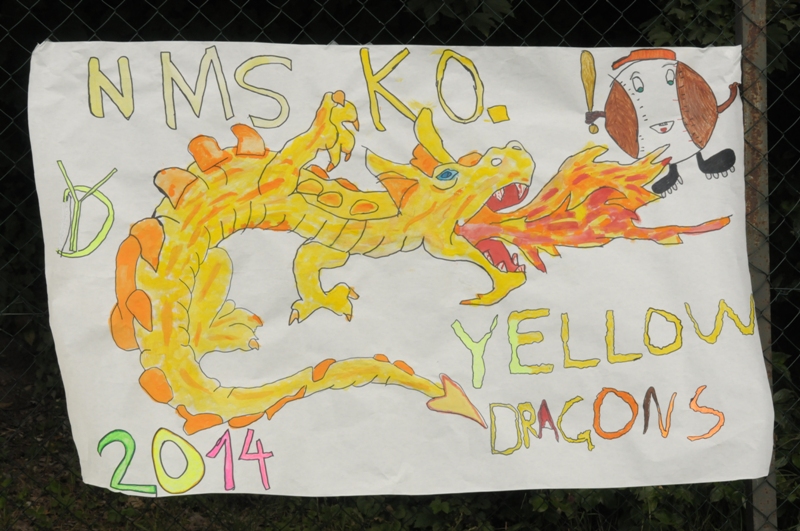 NMS KO.
YD
YELLOW
DRAGONS
2014